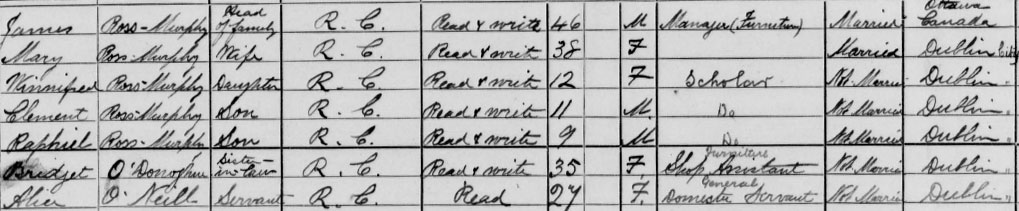 James Ross-Murphy Head of family R. C. Read & write 46 M Manager (Furniture) Married Ottawa Canada
Mary Ross-Murphy Wife R. C. Read & write 38 F Married Dublin City
Winnifred Ross-Murphy Daughter R. C. Read & write 12 F Scholar Not Married Dublin "
Clement Ross-Murphy Son R. C. Read & write 11 M. Do Not Married Dublin "
Raphiel Ross-Murphy Son R. C. Read & write 9 M Do Not Married Dublin "
Bridget O'Donoghue Sister in-law R. C. Read & write 35 F. Furniture Shop Assistant Not Married Dublin "
Alice O'Neill Servant R. C. Read 27 F. General Domestic Servant Not Married Dublin "